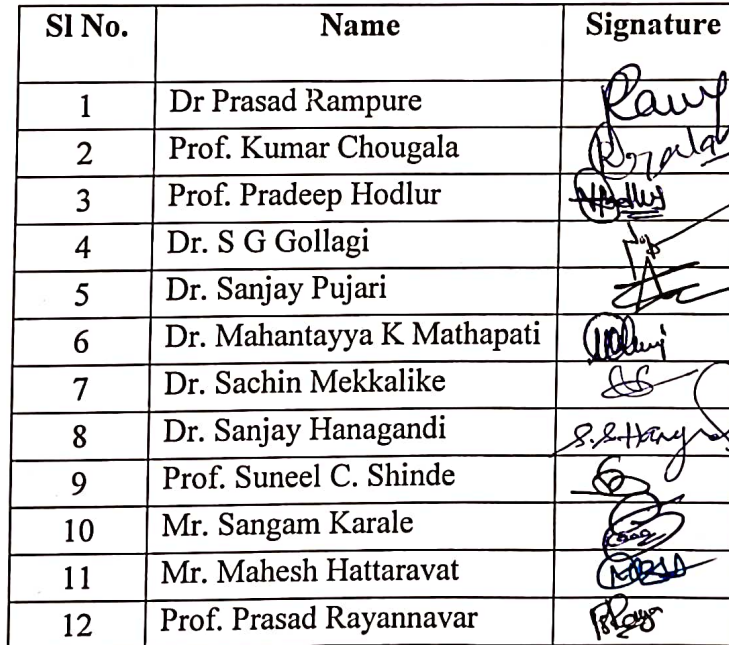 Sl No. Name Signature
1 Dr Prasad Rampure
2 Prof. Kumar Chougala
3 Prof. Pradeep Hodlur
4 Dr. S G Gollagi
5 Dr. Sanjay Pujari
6 Dr. Mahantayya K Mathapati
7 Dr. Sachin Mekkalike
8 Dr. Sanjay Hanagandi
9 Prof. Suneel C. Shinde
10 Mr. Sangam Karale
11 Mr. Mahesh Hattaravat
12 Prof. Prasad Rayannavar